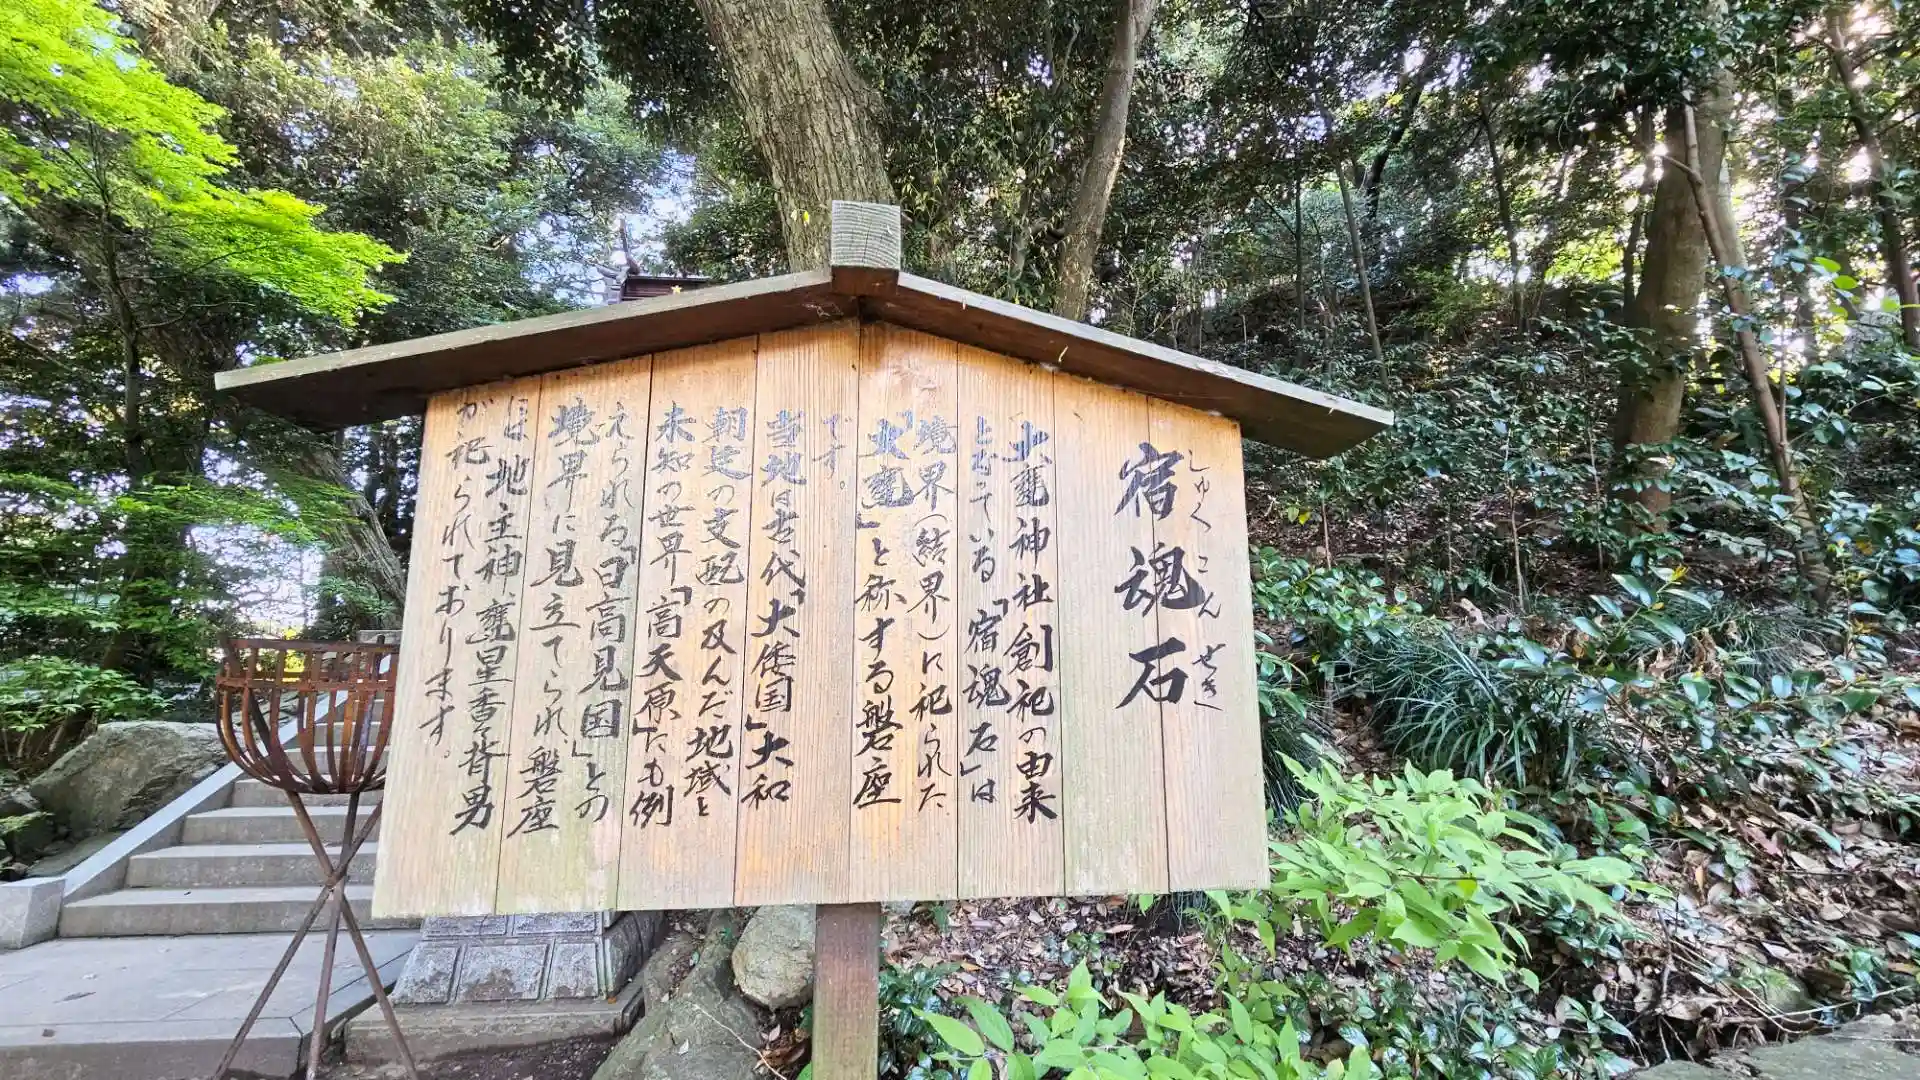 宿魂石
しゅくこんせき
大甕神社創祀の由来
となっている「宿魂石」は
境界（結界）に祀られた
「大甕」と称する磐座
です。
当地は古代「大倭国」大和
朝廷の支配の及んだ地域と
未知の世界「高天原」にも例
えられる「日高見国」との
境界に見立てられ、磐座
には地主神、甕星香々背男
が祀られております。